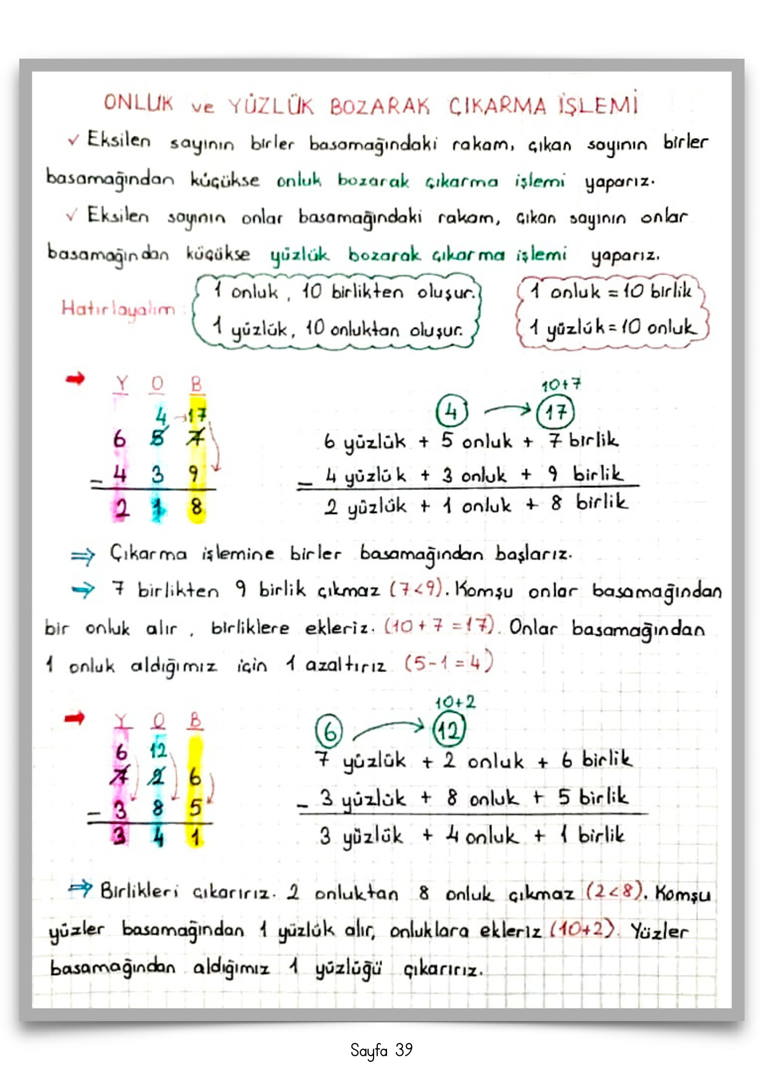 ONLUK ve YÜZLÜK BOZARAK ÇIKARMA İŞLEMİ
✓ Eksilen sayının birler basamağındaki rakam, çıkan sayının birler
basamağından küçükse onluk bozarak çıkarma işlemi yaparız.
✓ Eksilen sayının onlar basamağındaki rakam, çıkan sayının onlar
basamağından küçükse yüzlük bozarak çıkarma işlemi yaparız.
Hatırlayalım:
1 onluk, 10 birlikten oluşur.
1 yüzlük, 10 onluktan oluşur.
1 onluk = 10 birlik
1 yüzlük = 10 onluk
Y O B
4 17
6 5 7
- 4 3 9
2 1 8
10+7
4 → 17
6 yüzlük + 5 onluk + 7 birlik
- 4 yüzlük + 3 onluk + 9 birlik
2 yüzlük + 1 onluk + 8 birlik
⇒ Çıkarma işlemine birler basamağından başlarız.
⇒ 7 birlikten 9 birlik çıkmaz (7<9). Komşu onlar basamağından
bir onluk alır, birliklere ekleriz. (10+7=17). Onlar basamağından
1 onluk aldığımız için 1 azaltırız (5-1=4)
Y O B
6 12
7 2 6
- 3 8 5
3 4 1
10+2
6 → 12
7 yüzlük + 2 onluk + 6 birlik
- 3 yüzlük + 8 onluk + 5 birlik
3 yüzlük + 4 onluk + 1 birlik
⇒ Birlikleri çıkarırız. 2 onluktan 8 onluk çıkmaz (2<8). Komşu
yüzler basamağından 1 yüzlük alır, onluklara ekleriz (10+2). Yüzler
basamağından aldığımız 1 yüzlüğü çıkarırız.
Sayfa 39